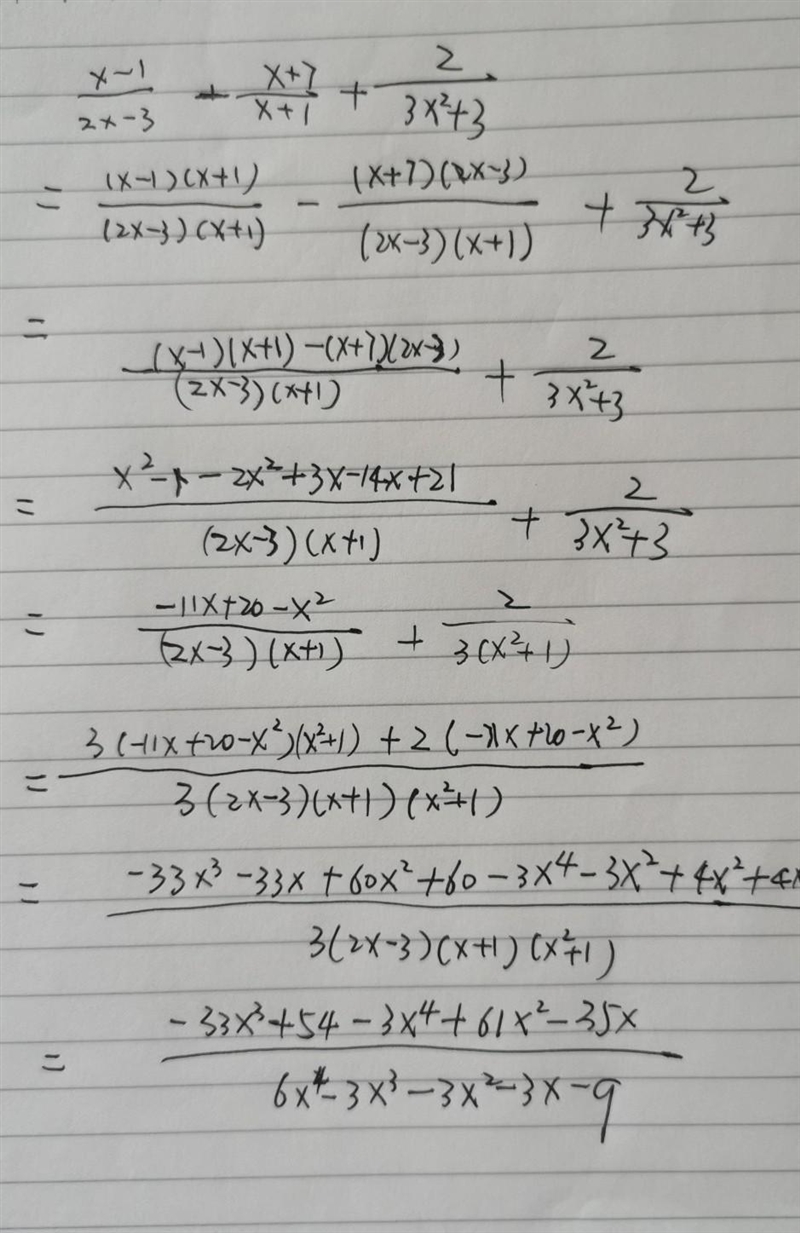 (x-1)/(2x-3) - (x+7)/(x+1) + 2/(3x²+3)
= (x-1)(x+1)/(2x-3)(x+1) - (x+7)(2x-3)/(2x-3)(x+1) + 2/(3x²+3)
= ((x-1)(x+1)-(x+7)(2x-3))/(2x-3)(x+1) + 2/(3x²+3)
= (x²-1-2x²+3x-14x+21)/(2x-3)(x+1) + 2/(3x²+3)
= (-11x+20-x²)/(2x-3)(x+1) + 2/3(x²+1)
= (3(-11x+20-x²)(x²+1)+2(-x+20-x²))/3(2x-3)(x+1)(x²+1)
= (-33x³-33x+60x²+60-3x⁴-3x²+4x²+4x)/3(2x-3)(x+1)(x²+1)
= (-33x³+54-3x⁴+61x²-35x)/(6x⁴-3x³-3x²-3x-9)